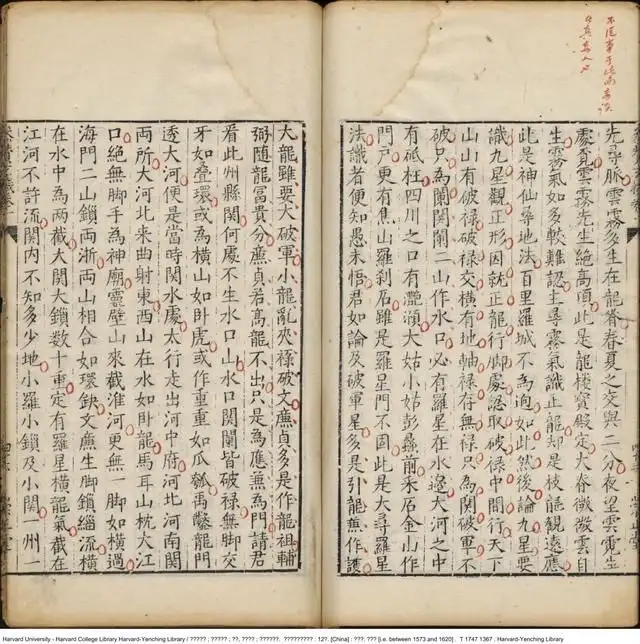 先尋脈雲霧多生在龍脊春夏之交與二分夜望雲霓生
處實雲霧先生絕高頂此是龍樓寶殿定大脊微微雲自
生霧氣如多軟難認主尋霧氣識正龍却是枝龍觀遠應
此是神仙尋地法百里羅城不為迥如此然後論九星要
識九星觀正形因就正龍行脚處認取破祿中間行天下
山山有破祿破祿交橫有地軸祿存無祿只為關破軍不
破只為闌關闌二山作水口必有羅星在水邊大河之中
有砥柱四川之口有艷澦大姑小姑彭蠡前采石金山作
門戶更有焦山羅刹石雖是羅星門不固此是大尋羅星
法識者便知愚未悟君如論及破軍星多是引龍兼作護
大龍雖要大破軍小龍亂夾祿破文廉貞多是作龍祖輔
弼隨龍富貴分廉貞若高龍不出只是為應兼為門請君
看此州縣間何處不生水口山水口關闌皆破祿無脚交
牙如疊環或為橫山如卧虎或作重重如瓜瓠禹鑿龍門
透大河便是當時關水處太行走出河中府河北河南關
兩所大河北來曲射東西山在水如卧龍馬耳山枕大江
口絕無脚手為神廟靈壁山來截淮河更無一脚如橫過
海門二山鎖兩浙兩山相合如環玦文廉生脚鎖緇流橫
在水中為兩截大關大鎖數十重定有羅星橫龍氣截在
江河不許流關內不知多少地小羅小鎖及小關一州一
Harvard University - Harvard College Library Harvard-Yenching Library / ????? ; ????? ; ??, ???? ; ??????. ????????? : 12?. [China] : ???: ??? [i.e. between 1573 and 1620]. T 1747 1367 . Harvard-Yenching Library